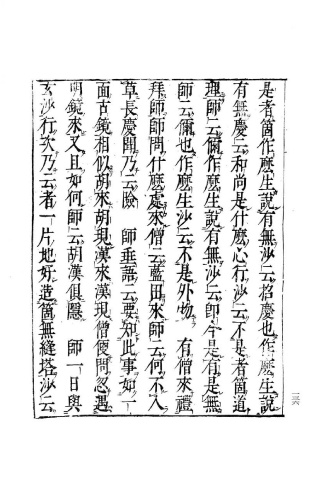 是者箇作麽生說有無沙云招慶也作麽生說
有無慶云和尚是什麽心行沙云不是者箇道
理師云儞作麽生說有無沙云即今是有是無
師云儞也作麽生沙云不是外物　有僧來禮
拜師師問什麽處來僧云藍田來師云何不入
草長慶聞乃云險　師垂語云要知此事如一
面古鏡相似胡來胡現漢來漢現僧便問忽遇
明鏡來又且如何師云胡漢俱隱　師一日與
玄沙行次乃云者一片地好造箇無縫塔沙云
一三六